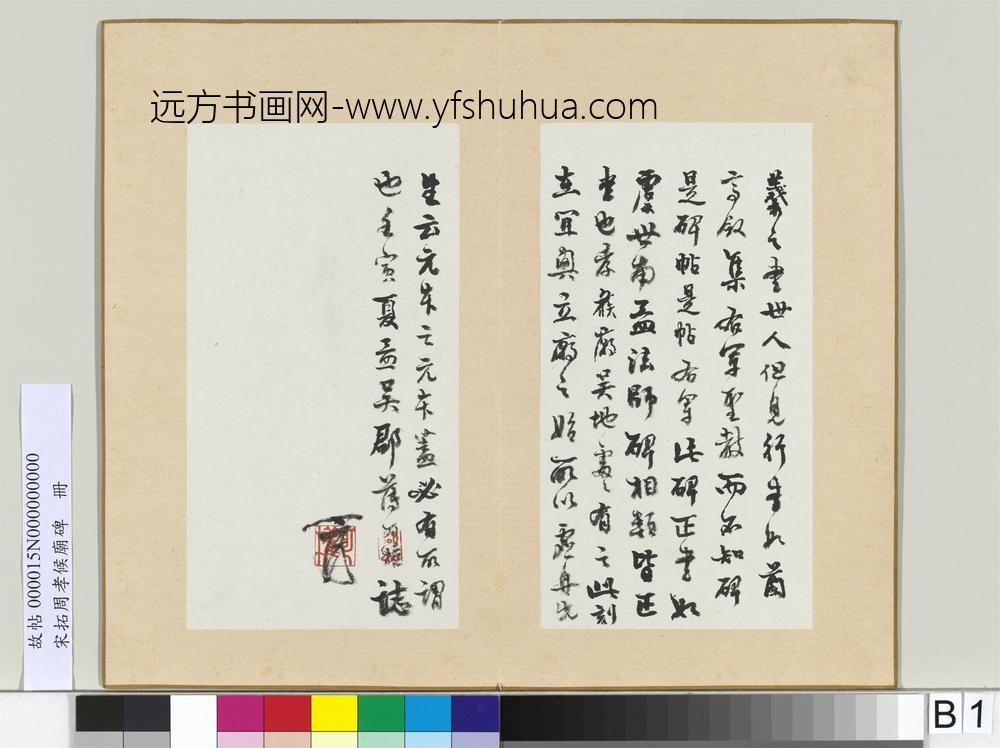 远方书画网-www.yfshuhua.com
羲之書世人但見行書如蘭
亭敘集右軍聖教而不知碑
是碑帖是帖右軍此碑正書如
虞世南孟法師碑相類皆正
書也孝侯廟吳地處〻有之此刻
在宜興立廟之始所以虛舟先
生云元之元本蓋必有所謂
也壬寅夏孟吳郡誌
故帖 000015N000000000
宋拓周孝候廟碑 冊
B 1